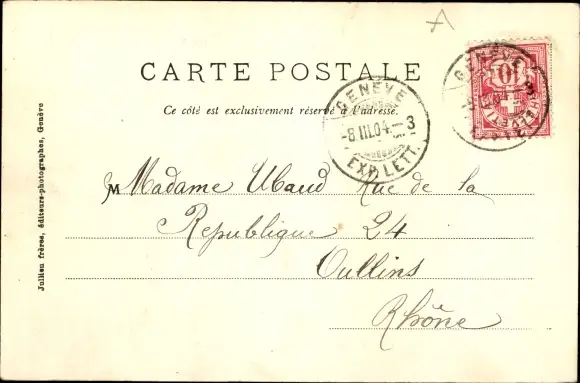 A
CARTE POSTALE
Ce côté est exclusivement réservé à l'adresse.
GENÈVE
-8.III.04.—3
EXP. LETT.
GENÈVE
10
HELVETIA
Madame Ubaud Rue de la
République 24
Oullins
Rhône
Jullien frères, éditeurs-photographes, Genève